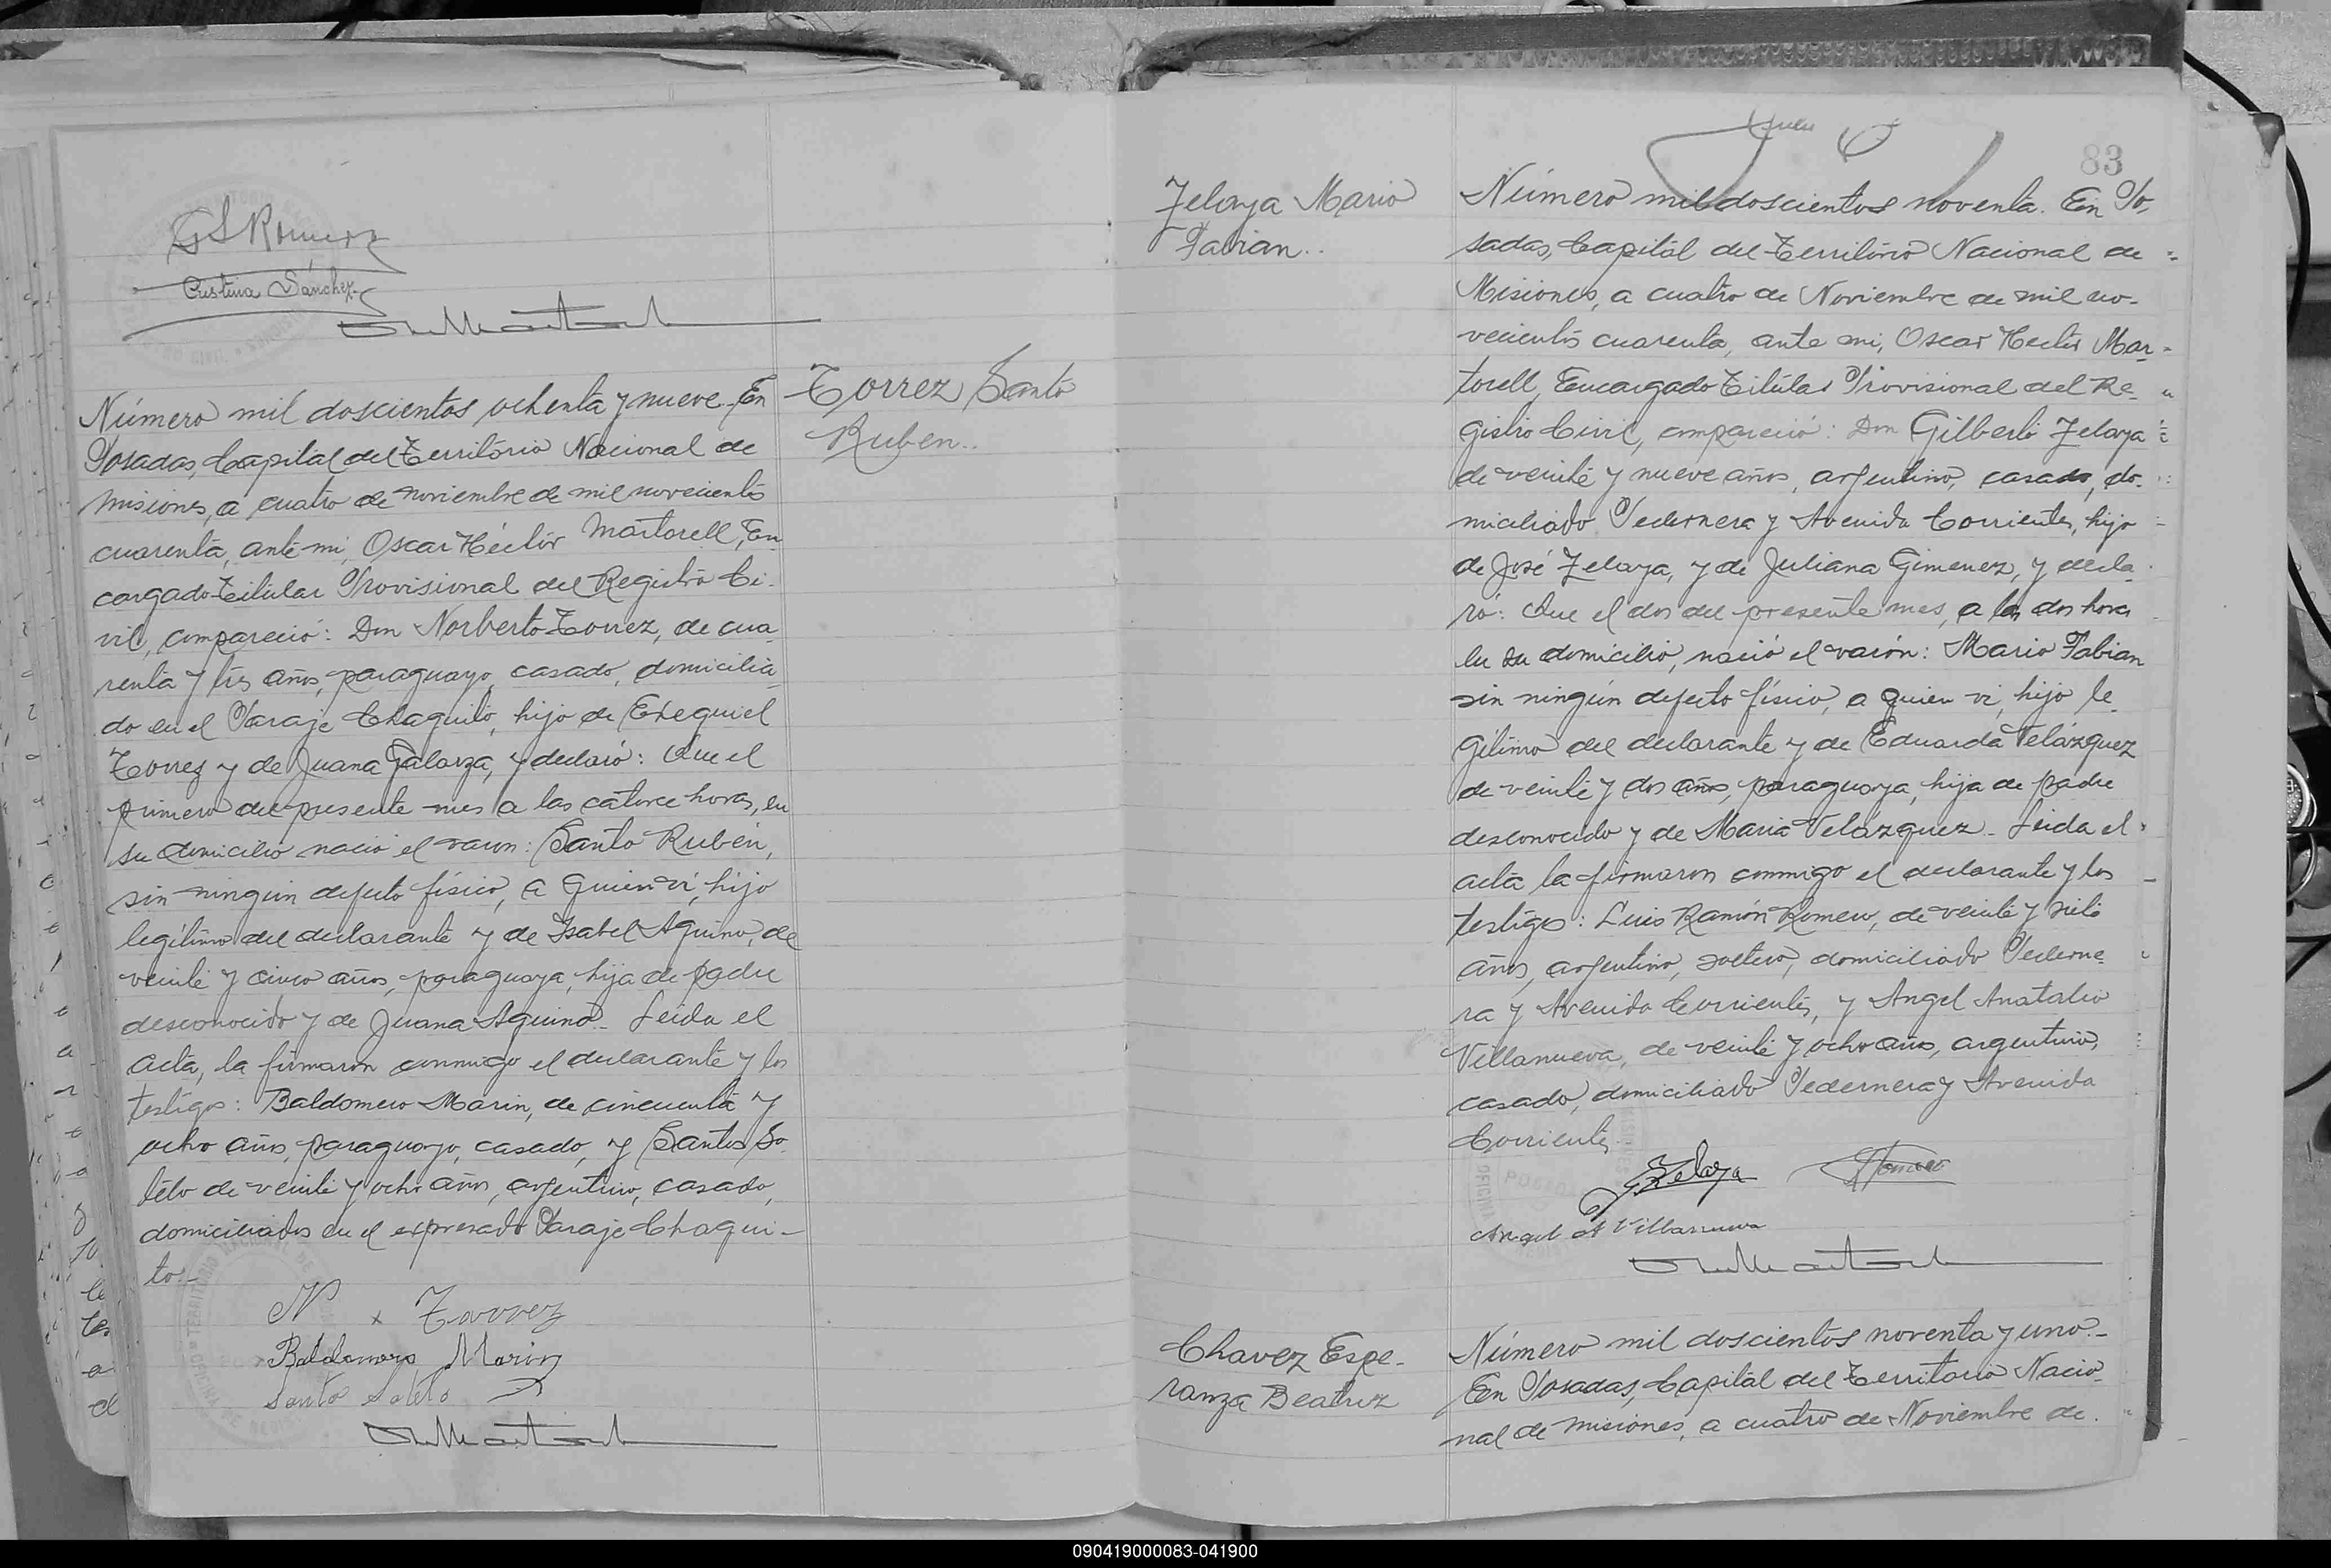 GSRomero
Cristina Sánchez
Torrez Santo
Ruben..
Número mil doscientos ochenta y nueve. En
Posadas, Capital del Territorio Nacional de
Misiones, a cuatro de noviembre de mil novecientos
cuarenta, ante mi, Oscar Héctor Martorell, En
cargado Titular Provisional del Registro Ci-
vil, compareció: Don Norberto Torrez, de cua
renta y tres años, paraguayo, casado, domicilia
do en el Paraje Chaquito, hijo de Ezequiel
Torrez y de Juana Galarza, y declaró: Que el
primero del presente mes a las catorce horas, en
su domicilio nació el varon: Santo Rubén,
sin ningún defecto físico, a quien vi, hijo
legítimo del declarante y de Isabel Aquino, de
veinte y cinco años, paraguaya, hija de padre
desconocido y de Juana Aquino. Leida el
acta, la firmaron conmigo el declarante y los
testigos: Baldomero Marin, de cincuenta y
ocho años, paraguayo, casado, y Santos So
telo de veinte y ocho años, argentino, casado,
domiciliados en el expresado Paraje Chaqui-
to.-
N x Torrez
Baldomero Marin
Santo Sotelo
83
Zelaya Mario
Fabian..
Número mil doscientos noventa. En Po,
sadas, Capital del Territorio Nacional de
Misiones, a cuatro de Noviembre de mil no-
vecientos cuarenta, ante mi, Oscar Hector Mar-
torell, Encargado Titular Provisional del Re-
gistro Civil, compareció: Don Gilberto Zelaya
de veinte y nueve años, argentino, casado, do-
miciliado Pedernera y Avenida Corrientes, hijo
de José Zelaya, y de Juliana Gimenez, y decla-
ró: Que el dos del presente mes, a las dos horas
en su domicilio, nació el varón: Mario Fabian
sin ningún defecto físico, a quien vi, hijo le
gítimo del declarante y de Eduarda Velázquez
de veinte y dos años, paraguaya, hija de padre
desconocido y de Maria Velázquez. Leida el
acta la firmaron conmigo el declarante y los
testigos: Luis Ramón Romero, de veinte y siete
años, argentino, soltero, domiciliado Pederne
ra y Avenida Corrientes, y Angel Anatalio
Villanueva, de veinte y ocho años, argentino,
casado, domiciliado Pedernera y Avenida
Corrientes.
GZelaya
Romero
Angel A Villanueva
Chavez Espe-
ranza Beatriz
Número mil doscientos noventa y uno.-
En Posadas, Capital del Territorio Nacio-
nal de Misiones, a cuatro de Noviembre de
090419000083-041900